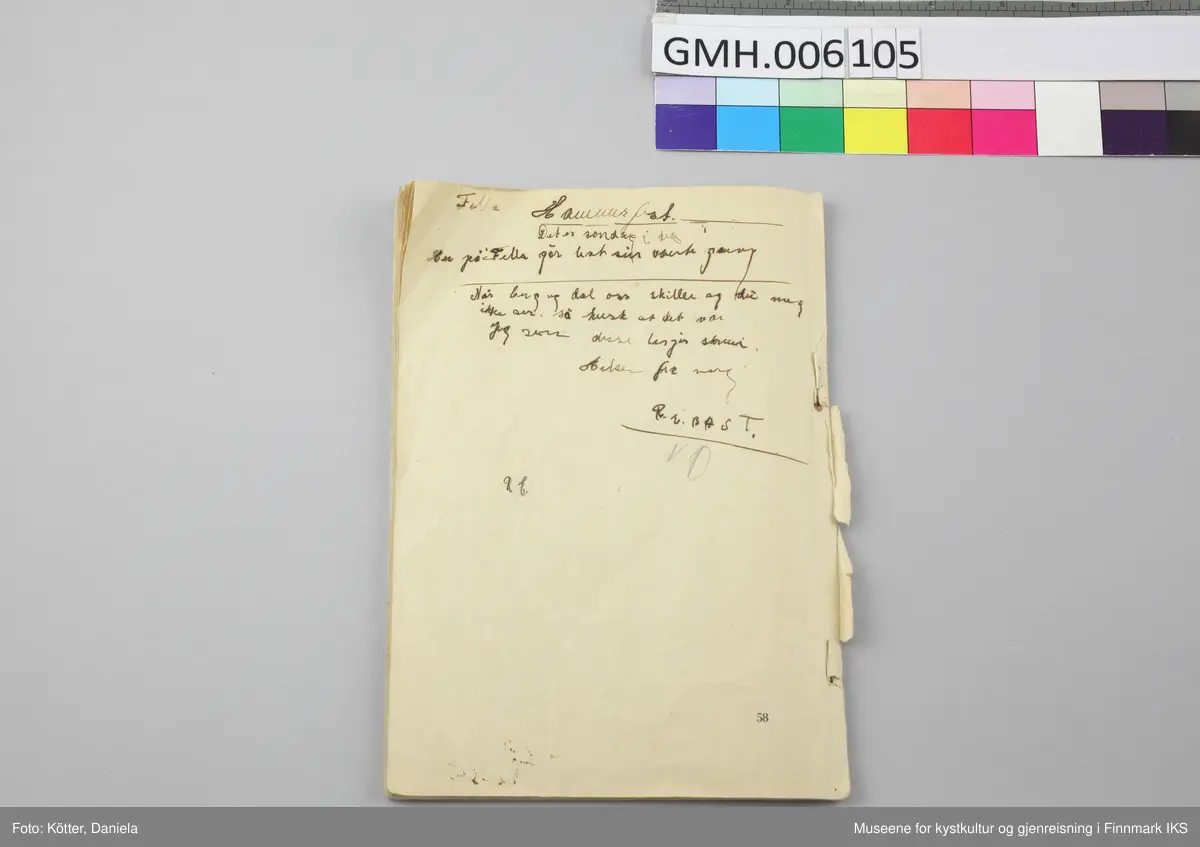 GMH.006105
Fella
Hammerfest.
Det er søndag i dag
Her på Fella går
Når berg og dal oss skiller og du meg
ikke ser. så husk at det var
Jeg som disse linjer skrev.
Hilsen fra meg
R. E. BAST.
R E
58
Foto: Kötter, Daniela
Museene for kystkultur og gjenreisning i Finnmark IKS